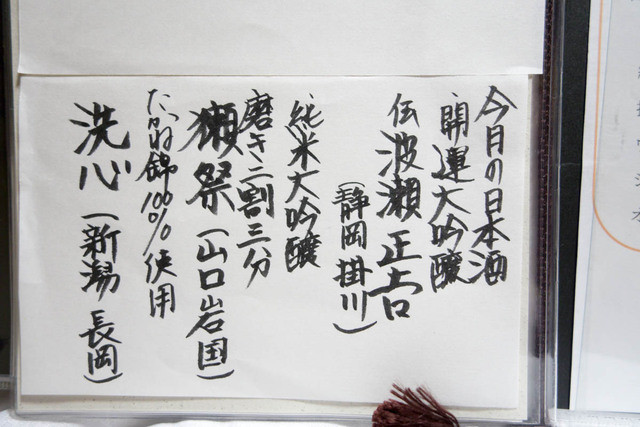 今月の日本酒
開運大吟醸
伝 波瀬正吉
(静岡掛川)
純米大吟醸
磨き二割三分
獺祭(山口岩国)
たかね錦100%使用
洗心(新潟 長岡)